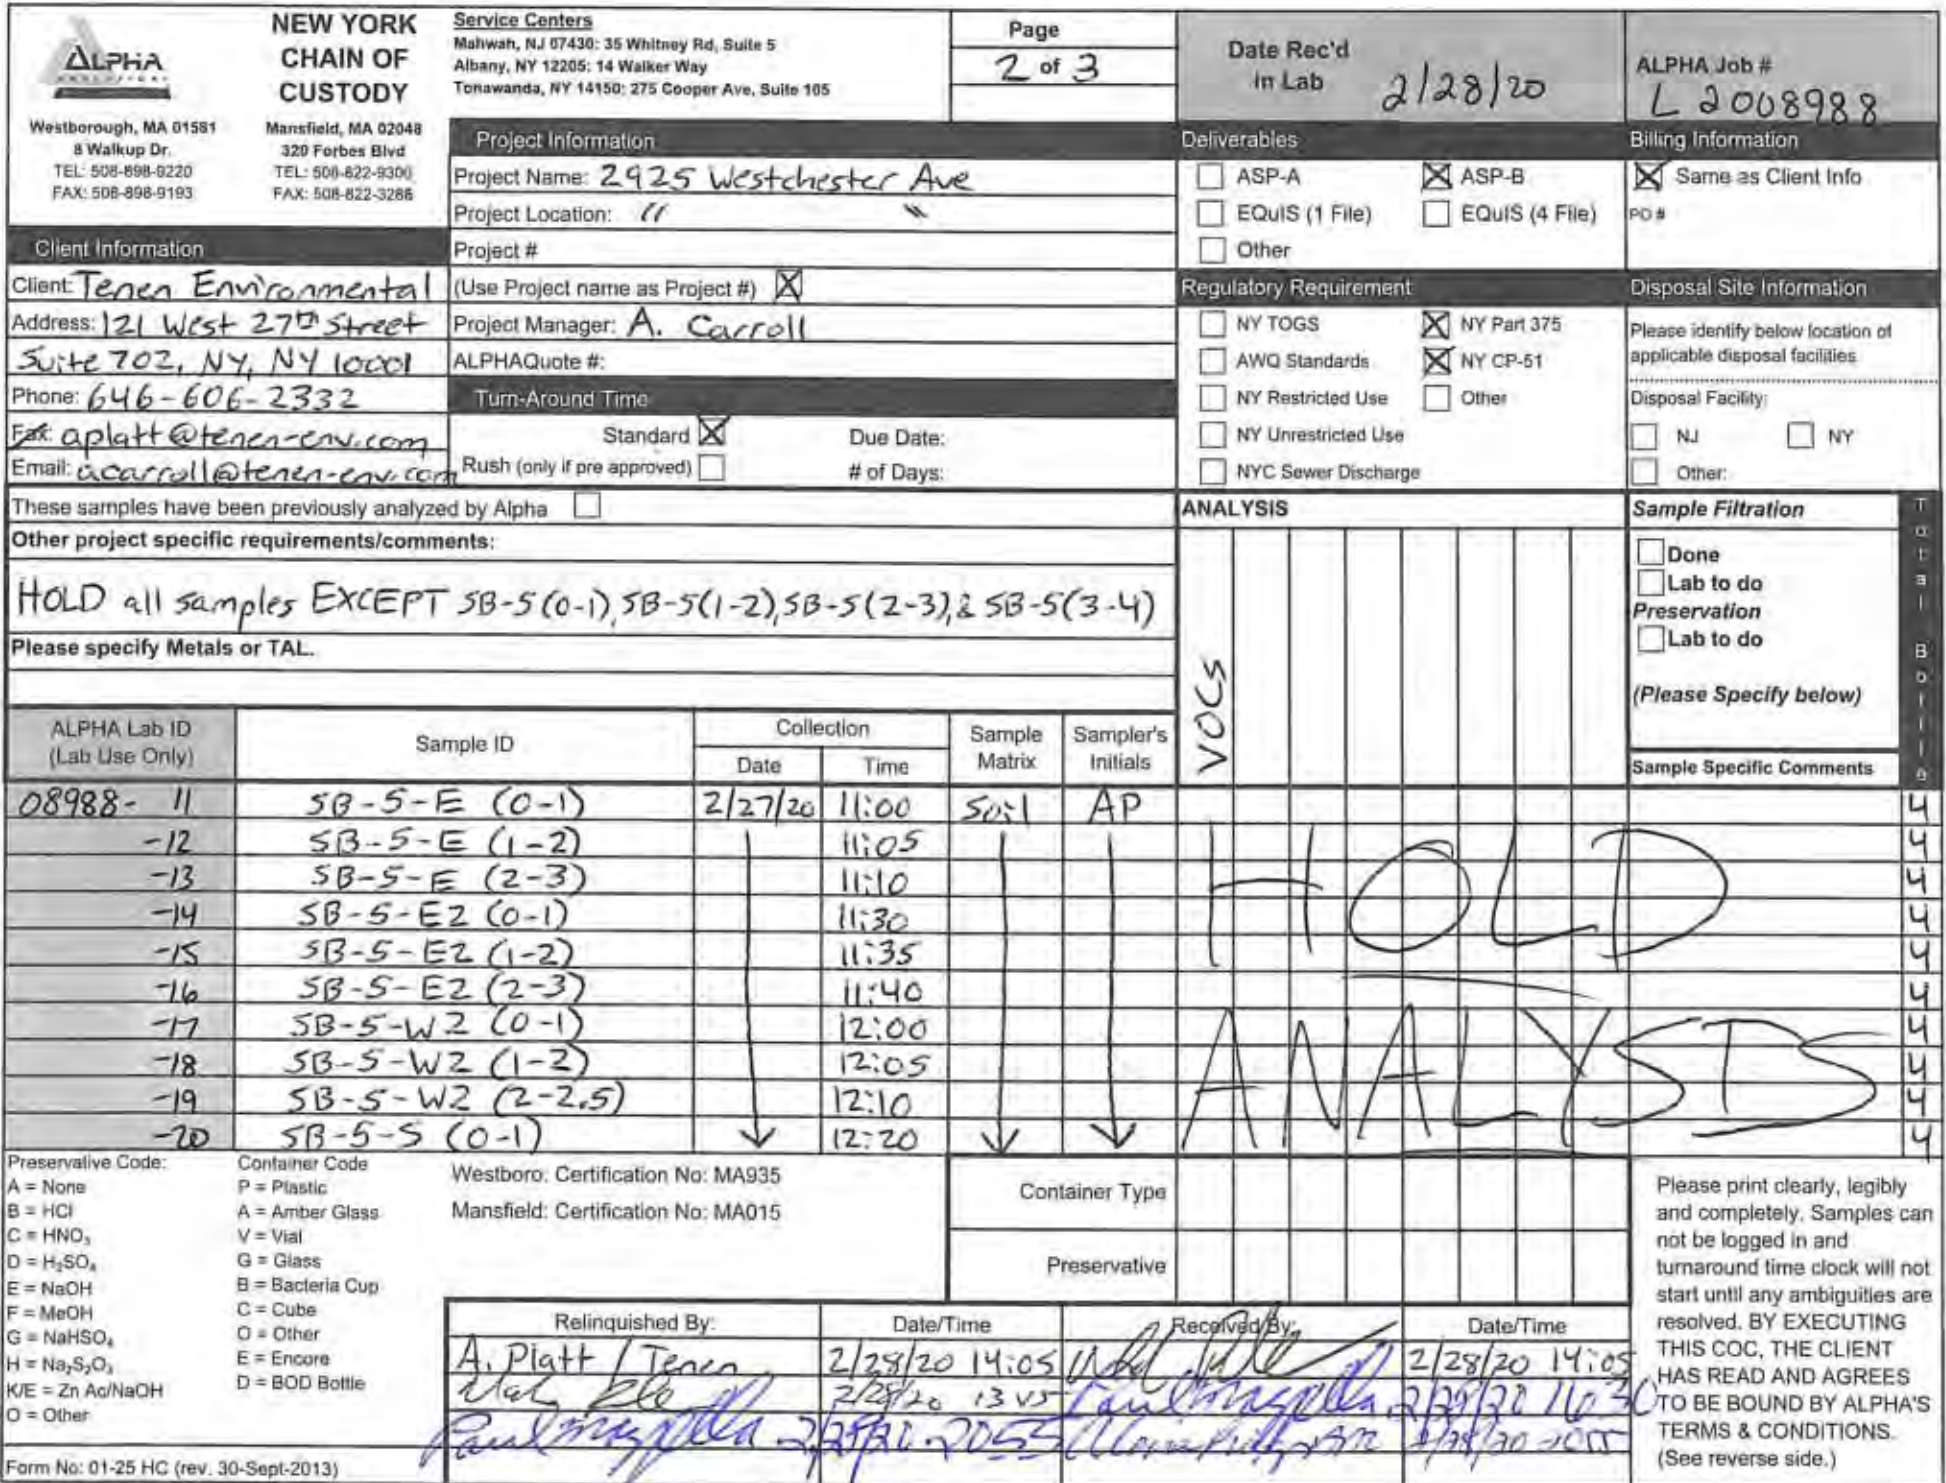 ALPHA
ANALYTICAL
NEW YORK
CHAIN OF
CUSTODY
Westborough, MA 01581
8 Walkup Dr.
TEL: 508-898-9220
FAX: 508-898-9193
Mansfield, MA 02048
320 Forbes Blvd
TEL: 508-822-9300
FAX: 508-822-3288
Service Centers
Mahwah, NJ 07430: 35 Whitney Rd, Suite 5
Albany, NY 12205: 14 Walker Way
Tonawanda, NY 14150: 275 Cooper Ave, Suite 105
Page
2 of 3
Date Rec'd
in Lab 2/28/20
ALPHA Job #
L2008988
Project Information
Project Name: 2925 Westchester Ave
Project Location: " "
Project #
(Use Project name as Project #) X
Project Manager: A. Carroll
ALPHAQuote #:
Deliverables
ASP-A X ASP-B
EQuIS (1 File) EQuIS (4 File)
Other
Billing Information
X Same as Client Info
PO #
Client Information
Client: Tenen Environmental
Address: 121 West 27th Street
Suite 702, NY, NY 10001
Phone: 646-606-2332
Fax: aplatt@tenen-env.com
Email: acarroll@tenen-env.com
Turn-Around Time
Standard X Due Date:
Rush (only if pre approved) # of Days:
Regulatory Requirement
NY TOGS X NY Part 375
AWQ Standards X NY CP-51
NY Restricted Use Other
NY Unrestricted Use
NYC Sewer Discharge
Disposal Site Information
Please identify below location of
applicable disposal facilities
Disposal Facility:
NJ NY
Other:
These samples have been previously analyzed by Alpha
Other project specific requirements/comments:
HOLD all samples EXCEPT SB-5(0-1), SB-5(1-2), SB-5(2-3), & SB-5(3-4)
Please specify Metals or TAL.
ANALYSIS
VOCs
Sample Filtration
Done
Lab to do
Preservation
Lab to do
(Please Specify below)
Sample Specific Comments
ALPHA Lab ID
(Lab Use Only)
Sample ID
Collection
Date Time
Sample
Matrix
Sampler's
Initials
08988- 11 SB-5-E (0-1) 2/27/20 11:00 Soil AP 4
-12 SB-5-E (1-2) 11:05 4
-13 SB-5-E (2-3) 11:10 4
-14 SB-5-E2 (0-1) 11:30 4
-15 SB-5-E2 (1-2) 11:35 4
-16 SB-5-E2 (2-3) 11:40 4
-17 SB-5-W2 (0-1) 12:00 4
-18 SB-5-W2 (1-2) 12:05 4
-19 SB-5-W2 (2-2.5) 12:10 4
-20 SB-5-S (0-1) 12:20 4
HOLD
ANALYSIS
Preservative Code:
A = None
B = HCl
C = HNO₃
D = H₂SO₄
E = NaOH
F = MeOH
G = NaHSO₄
H = Na₂S₂O₃
K/E = Zn Ac/NaOH
O = Other
Container Code
P = Plastic
A = Amber Glass
V = Vial
G = Glass
B = Bacteria Cup
C = Cube
O = Other
E = Encore
D = BOD Bottle
Westboro: Certification No: MA935
Mansfield: Certification No: MA015
Container Type
Preservative
Relinquished By: Date/Time Received By: Date/Time
A. Platt / Tenen 2/28/20 14:05 2/28/20 14:05
2/28/20
Paul
Please print clearly, legibly
and completely. Samples can
not be logged in and
turnaround time clock will not
start until any ambiguities are
resolved. BY EXECUTING
THIS COC, THE CLIENT
HAS READ AND AGREES
TO BE BOUND BY ALPHA'S
TERMS & CONDITIONS.
(See reverse side.)
Form No: 01-25 HC (rev. 30-Sept-2013)